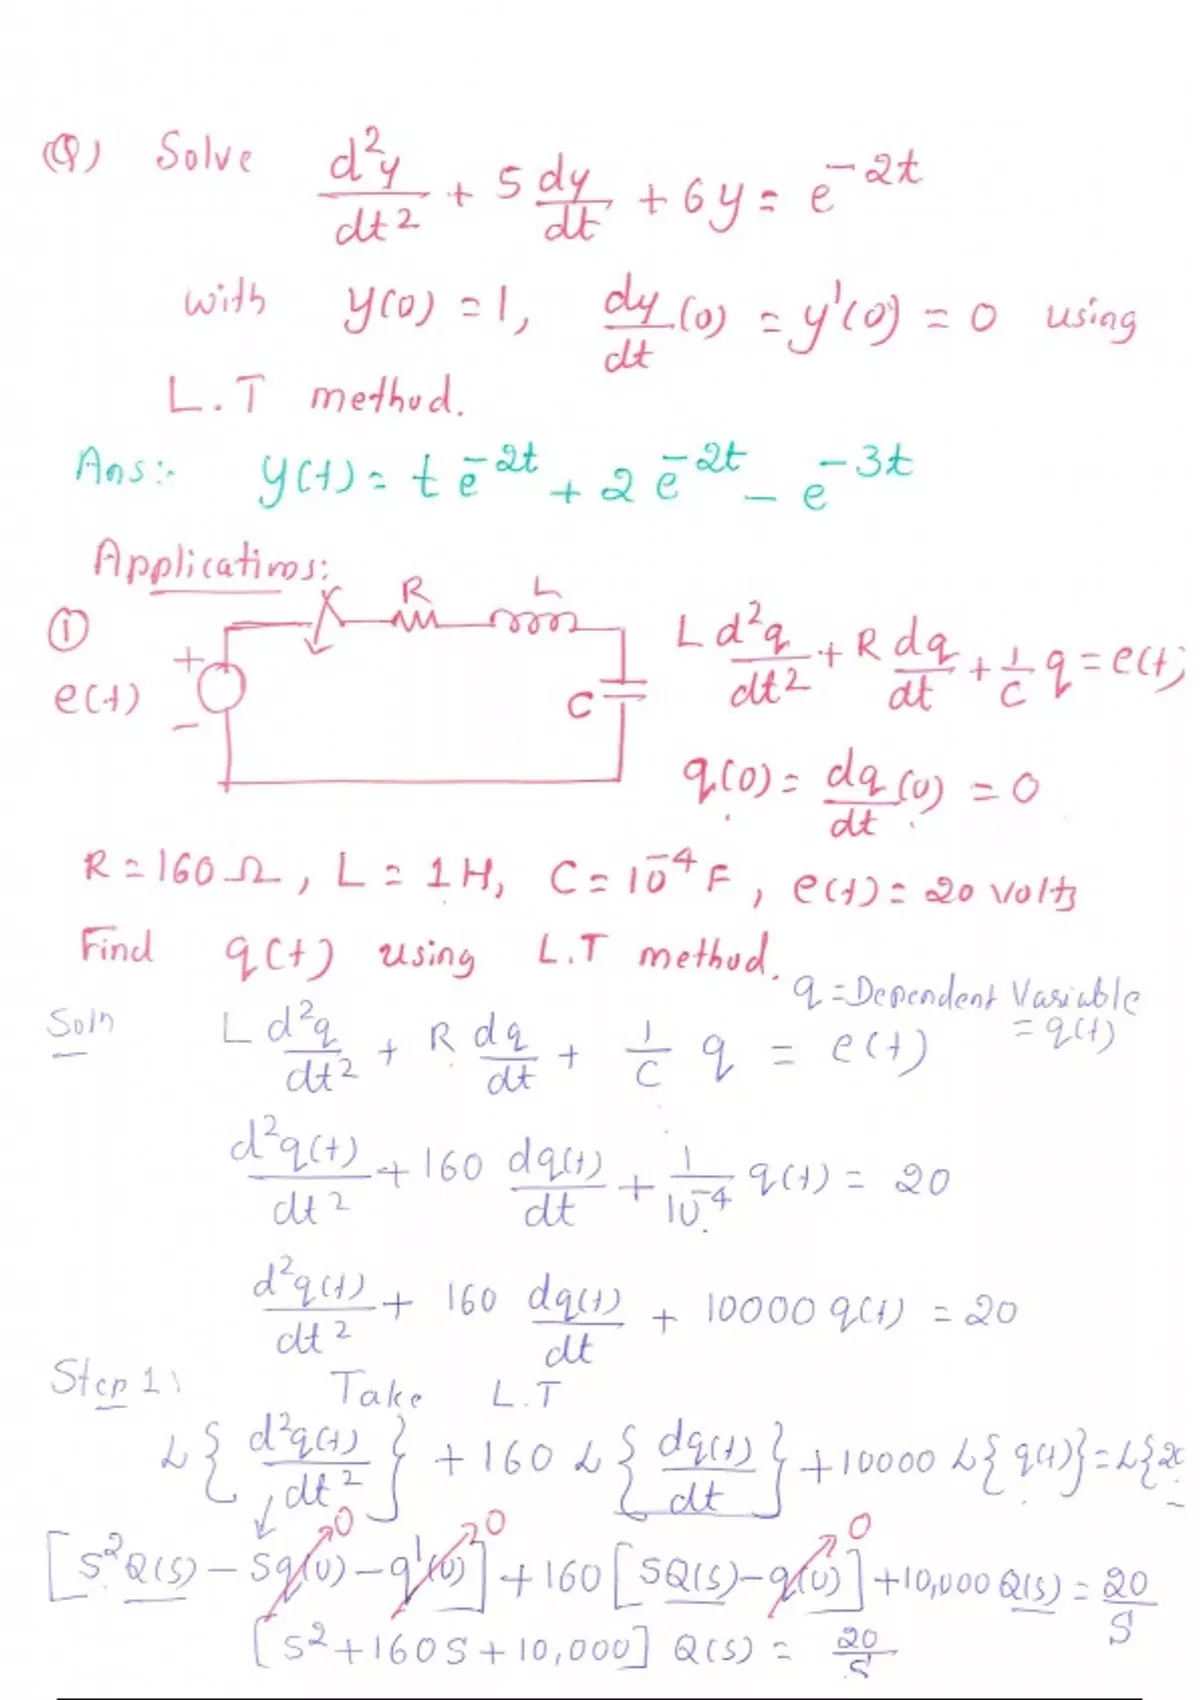 (Q) Solve d²y/dt² + 5 dy/dt + 6y = e^-2t
with y(0) = 1, dy/dt (0) = y'(0) = 0 using
L.T method.
Ans:- y(t) = t e^-2t + 2 e^-2t - e^-3t
Applications:
① R L
L d²q/dt² + R dq/dt + 1/C q = e(t);
+
e(t)
-
C
q(0) = dq/dt (0) = 0
R = 160 Ω, L = 1H, C = 10^-4 F, e(t) = 20 volts
Find q(t) using L.T method.
q = Dependent Variable
= q(t)
Soln L d²q/dt² + R dq/dt + 1/C q = e(t)
d²q(t)/dt² + 160 dq(t)/dt + 1/10^-4 q(t) = 20
d²q(t)/dt² + 160 dq(t)/dt + 10000 q(t) = 20
Step 1: Take L.T
L{d²q(t)/dt²} + 160 L{dq(t)/dt} + 10000 L{q(t)} = L{2
0 0 0
[S²Q(S) - Sq(0) - q'(0)] + 160 [SQ(S) - q(0)] + 10,000 Q(S) = 20/S
[S² + 160S + 10,000] Q(S) = 20/S